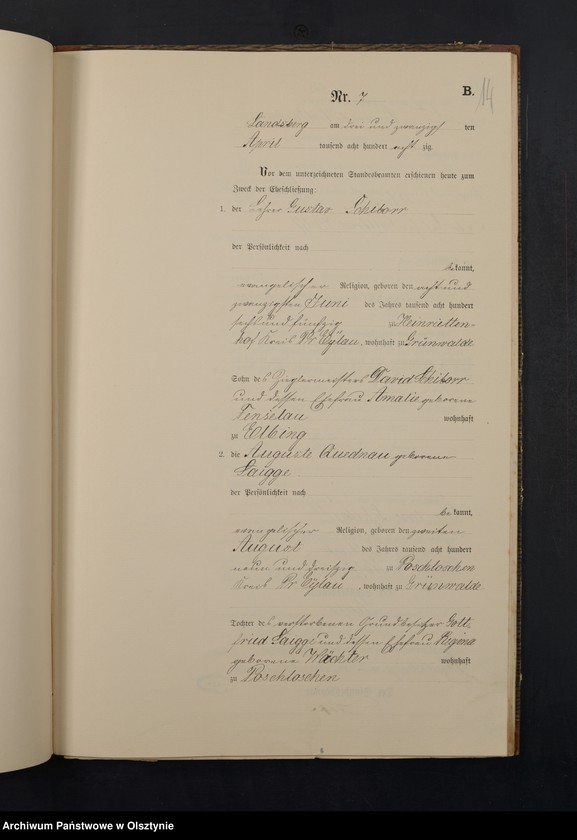 14
Nr. 7 B.
Landsberg am drei und zwanzigsten
April tausend acht hundert acht zig.
Vor dem unterzeichneten Standesbeamten erschienen heute zum
Zweck der Eheschließung:
1. der Lehrer Gustav Schitarr
der Persönlichkeit nach
be kannt,
evangelischer Religion, geboren den acht und
zwanzigsten Juni des Jahres tausend acht hundert
sechs und fünfzig zu Henrietten-
hof Kreis Pr Eylau, wohnhaft zu Grünwalde
Sohn des Zieglermeisters David Schitarr
und dessen Ehefrau Amalie geborene
wohnhaft
zu Elbing
2. die Auguste Quednau geborene
Saigge
der Persönlichkeit nach
be kannt,
evangelischer Religion, geboren den zweiten
August des Jahres tausend acht hundert
neun und dreißig zu Poschloschen
Kreis Pr Eylau, wohnhaft zu Grünwalde
Tochter des verstorbenen Grundbesitzer Gott-
fried Saigge und dessen Ehefrau Regina
geborene Wächter wohnhaft
zu Poschloschen
Archiwum Państwowe w Olsztynie